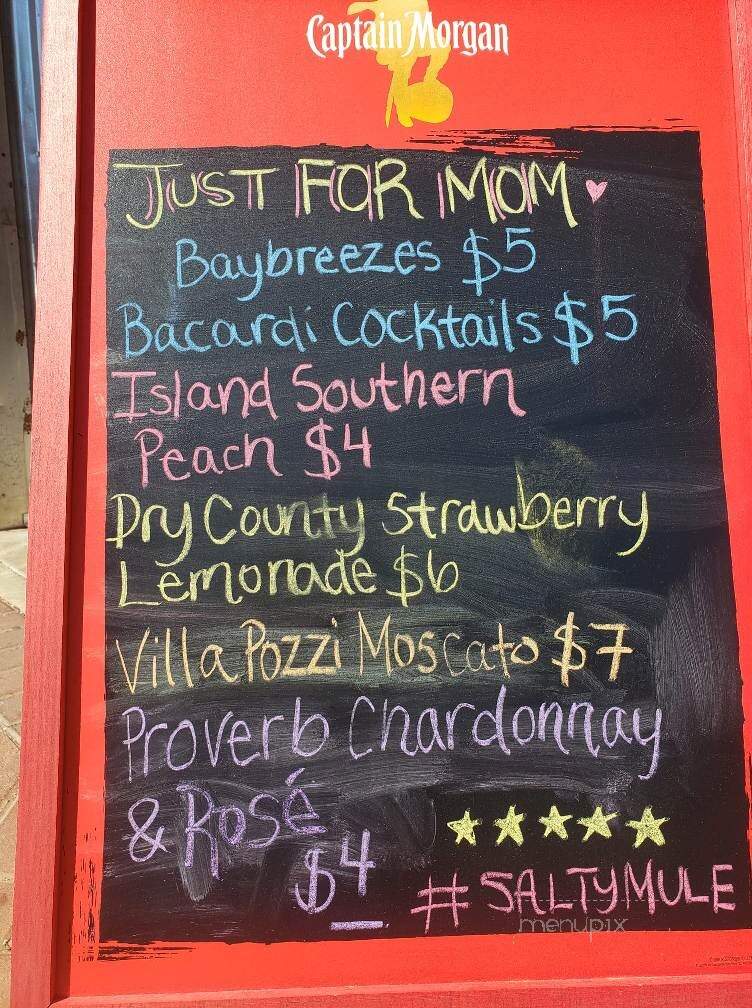 Captain Morgan
JUST FOR MOM
Baybreezes $5
Bacardi Cocktails $5
Island Southern
Peach $4
Dry County Strawberry
Lemonade $6
Villa Pozzi Moscato $7
Proverb Chardonnay
& Rosé
$4
#SALTYMULE
menupix